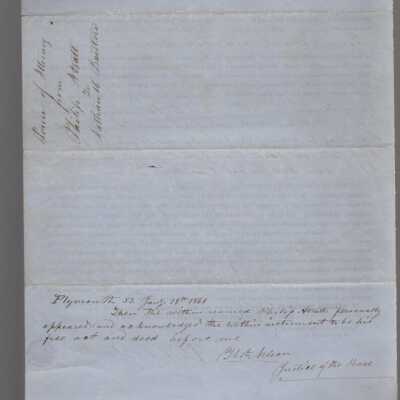 Power of Attorney
from
Philip
to
Nathaniel
Plymouth, SS. Jany 18th 1861
Then the within named Philip personally
appeared and acknowledged the within instrument to be his
free act and deed before me
Justice of the Peace